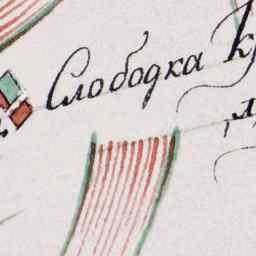 Слободка